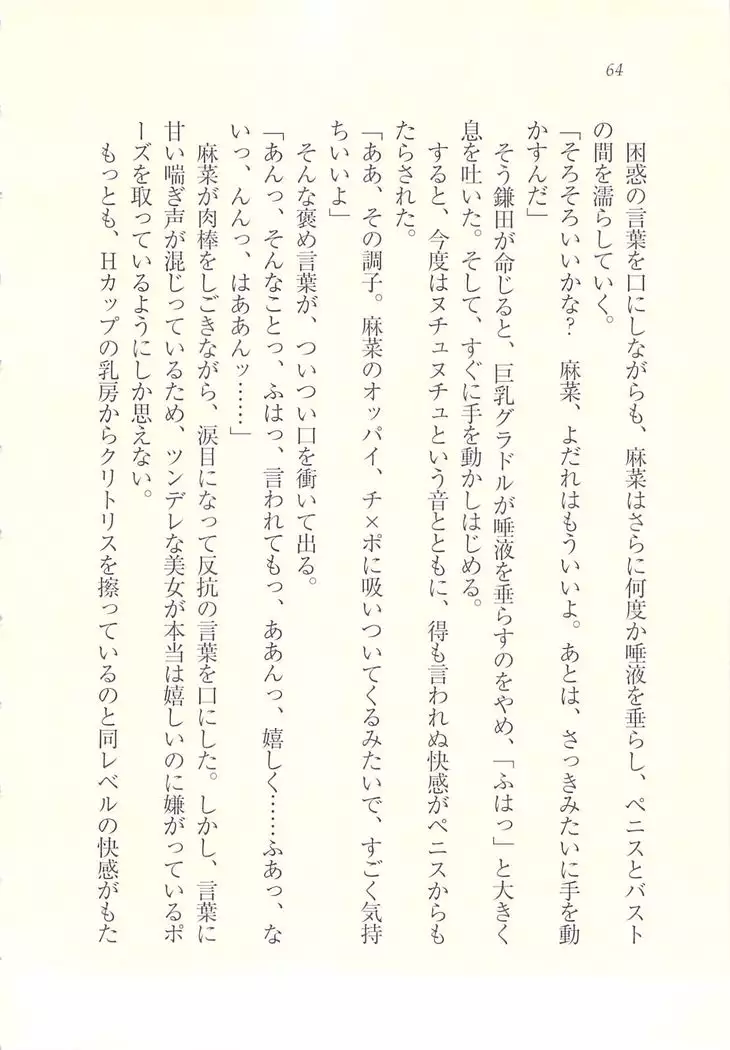 64
困惑の言葉を口にしながらも、麻菜はさらに何度か唾液を垂らし、ペニスとバスト
の間を濡らしていく。
「そろそろいいかな？　麻菜、よだれはもういいよ。あとは、さっきみたいに手を動
かすんだ」
そう鎌田が命じると、巨乳グラドルが唾液を垂らすのをやめ、「ふはっ」と大きく
息を吐いた。そして、すぐに手を動かしはじめる。
すると、今度はヌチュヌチュという音とともに、得も言われぬ快感がペニスからも
たらされた。
「ああ、その調子。麻菜のオッパイ、チ×ポに吸いついてくるみたいで、すごく気持
ちいいよ」
そんな褒め言葉が、ついつい口を衝いて出る。
「あんっ、そんなことっ、ふはっ、言われてもっ、ああんっ、嬉しく……ふあっ、な
いっ、んんっ、はああんッ……」
麻菜が肉棒をしごきながら、涙目になって反抗の言葉を口にした。しかし、言葉に
甘い喘ぎ声が混じっているため、ツンデレな美女が本当は嬉しいのに嫌がっているポ
ーズを取っているようにしか思えない。
もっとも、Hカップの乳房からクリトリスを擦っているのと同レベルの快感がもた